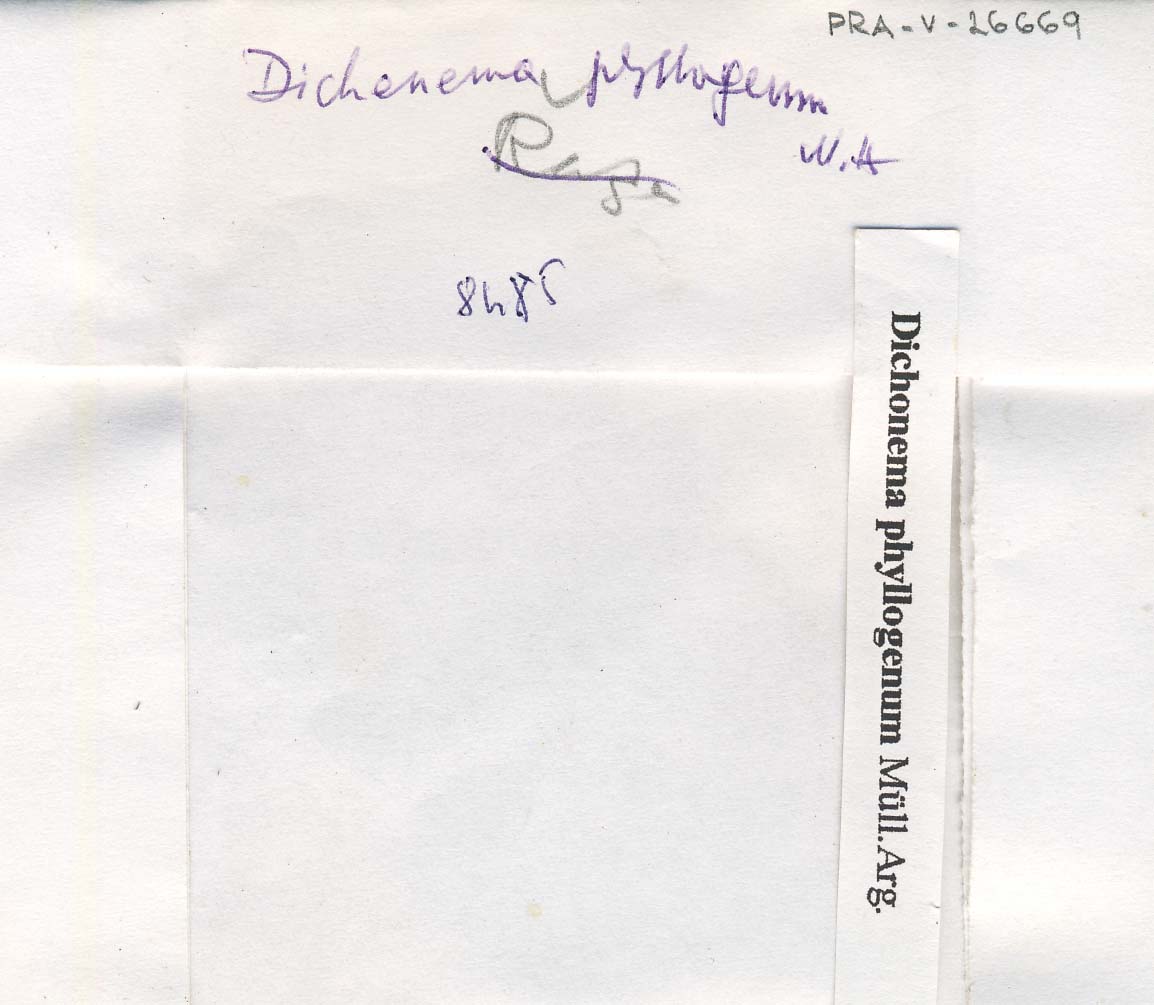 PRA-V-26669
Dichonema phyllogenum
M.A
8485
Dichonema phyllogenum Müll.Arg.